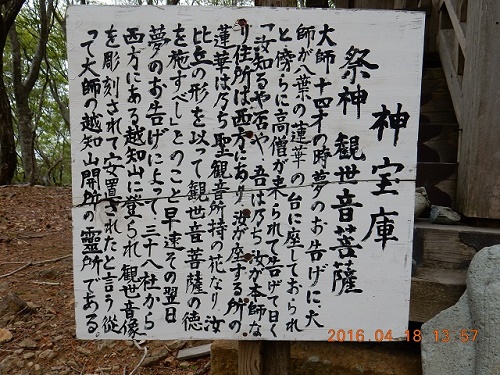 神宝庫
祭神 観世音菩薩
大師十四才の時夢のお告げに、大
師が八葉の蓮華の台に座しておられ
と傍らに高僧が来られて告げて曰く
「汝知るや否や、吾は乃ち汝が本師な
り住所は西方にあり汝が座する所の
蓮華は乃ち聖観音所持の花なり汝
比丘の形を以って観世音菩薩の徳
を施すべし」とのこと早速その翌日
夢のお告げによって三十八社から
西方にある越知山に登られ観世音像
を彫刻されて安置されたと言う従
って大師の越知山開所の霊所である。
2016.04.18 13:57